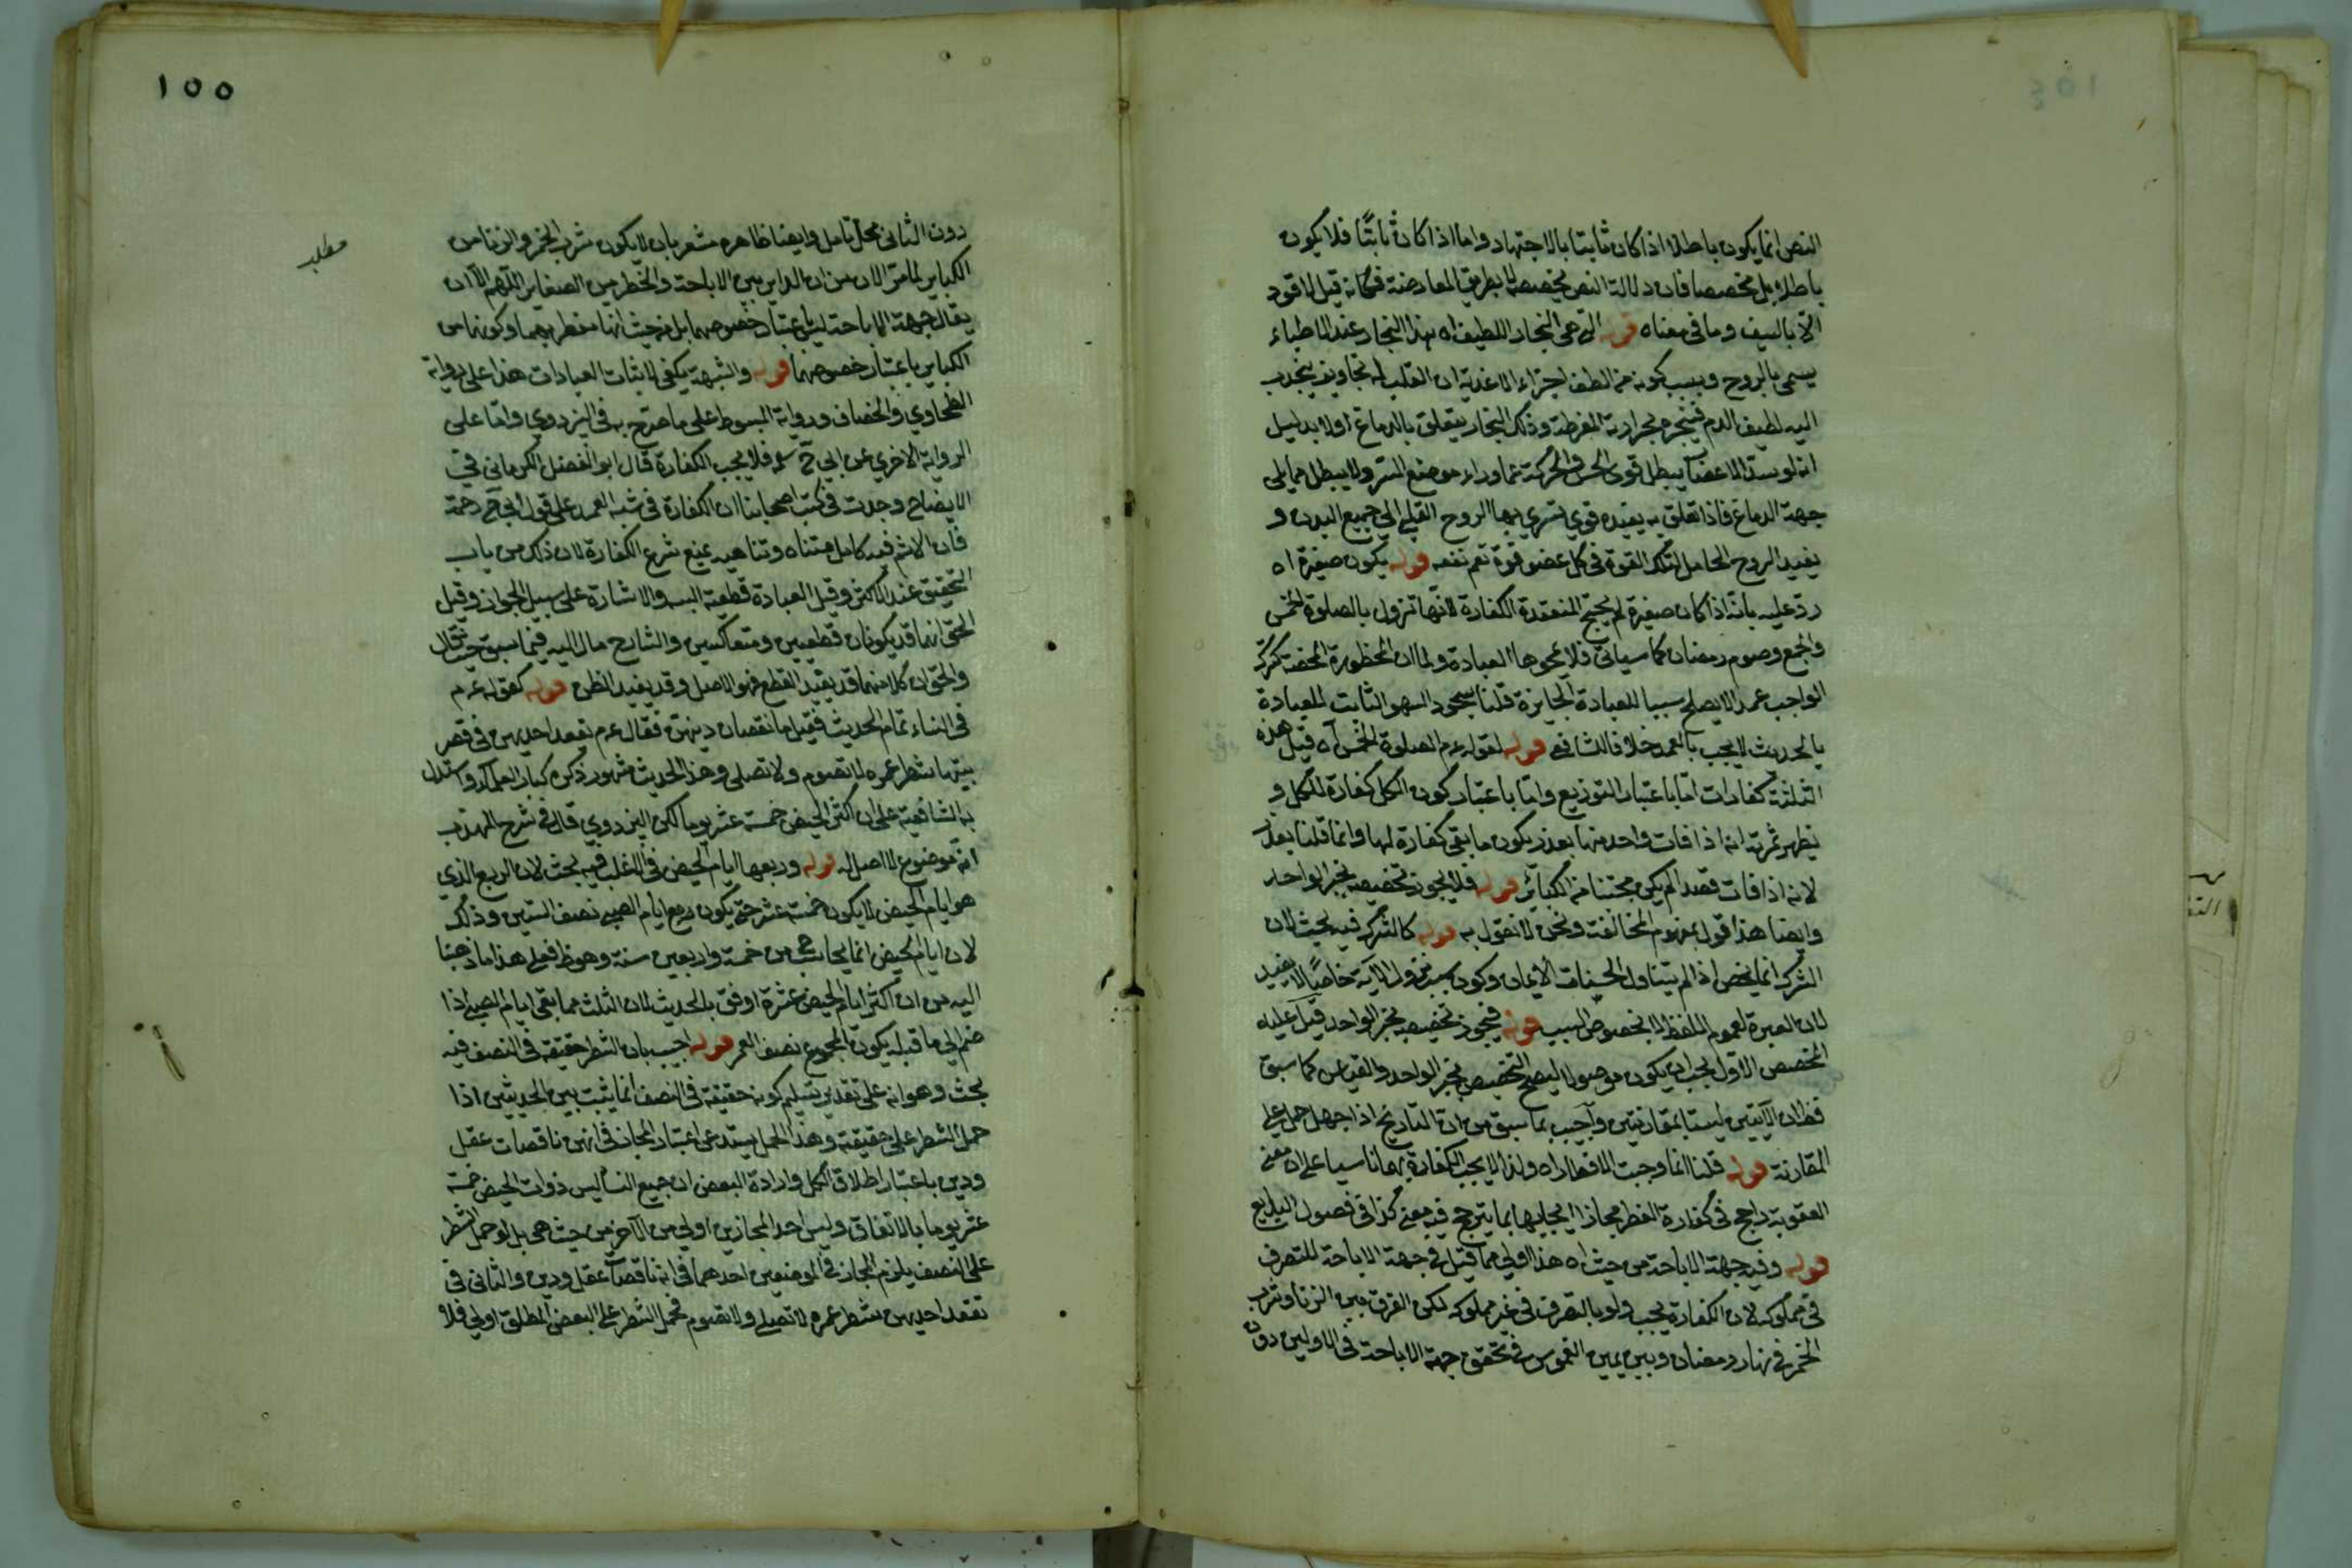 النص انما يكون باطلا اذا كان ثابتا بالاجتهاد واما اذا كان ثابتًا فلا يكون
باطلا بل مخصصا فان دلالة النص مخصصة بطريق المعارضة فكانه قيل لا قود
الا بالسيف وما في معناه قوله التي هي البخار اللطيف اه هذا البخار عند الاطباء
يسمى بالروح وبسبب كونه من الطف اجزاء الاغذية ان القلب له تجاويف ينجذب
اليه لطيف الدم فيتبخر بحرارته المفرطة وذلك البخار يتعلق بالدماغ اولا بدليل
انه لو سد الاعضا يبطل قوى الحس والحركة عما وراء موضع السد ولا يبطل مما يلي
جهة الدماغ فاذا تعلق به يفيده قوي تسري بها الروح القلبي الى جميع البدن و
يفيد الروح الحامل لتلك القوة في كل عضو قوة تعم نفعه قوله يكون صغيرة اه
رد عليه بانه اذا كان صغيرة لم يحتج المنعقدة الكفارة لانها تزول بالصلوة الخمس
والجمع وصوم رمضان كما سيأتى فلا يمحوها العبادة ولما ان المحظورة المحضة كترك
الواجب عمدا لا يصلح سببا للعبادة الجابرة قلنا سجود السهو الثابت للعبادة
بالحديث لا يجب بالعمد خلافا للشافعي قوله لقوله عم الصلوة الخمس اه قيل هذه
الثلثة كفارات اما باعتبار التوزيع واما باعتبار كون الكل كفارة للكل و
يظهر ثمرته انه اذا فات واحد منها بعذر يكون ما بقى كفارة لها وانما قلنا بعذر
لانه اذا فات قصدا لم يكن مجتنبا من الكبائر قوله فلا يجوز تخصيصه بخبر الواحد
وايضا هذا قول بمفهوم المخالفة ونحن لا نقول به قوله كالشرك فيه بحث لان
الشرك انما يخص اذا لم يتناول الحسنات الايمان وكون سبب نزول الآية خاصًا لا يفيد
لان العبرة لعموم اللفظ لا بخصوص السبب قوله فيجوز تخصيصه بخبر الواحد قيل عليه
المخصص الاول يجب ان يكون موصولا ليصح التخصيص بخبر الواحد والقياس كما سبق
فظ ان الآيتين ليستا بمقارنتين وأجيب بما سبق من ان التاريخ اذا جهل حمل على
المقارنة قوله قلنا انما وجبت للافطار اه ولذا لا يجب الكفارة بهما ناسيا على ان معنى
العقوبة راجح في كفارة الفطر مجازا ايجابها بما يترجح فيه معنى كذا في فصول البدايع
قوله وفيه جهة الاباحة من حيث اه هذا اولى مما قيل في جهة الاباحة للتصرف
في مملوكه لان الكفارة يجب ولو بالتصرف في غير مملوكه لكن الفرق بين الزنا وشرب
الخمر في نهار رمضان وبين يمين الغموس في تحقق جهة الاباحة في الاولين دون
١٥٥
مطلب
دون الثاني محل تامل وايضا ظاهره مشعر بان لا يكون شرب الخمر والزنا من
الكباير لما مر الان من ان الداير بين الاباحة والخطر من الصغاير اللهم الا ان
يقال جهة الاباحة ليس باعتبار خصوصهما بل من حيث انها مفطر بهما وكونها من
الكباير باعتبار خصوصهما قوله والشبهة يكفي لاثبات العبادات هذا على رواية
الطحاوي والخصاف ورواية المبسوط على ما صرح به في اليزدوي واما على
الرواية الاخري عن ابي ح سلم فلا يجب الكفارة قال ابو الفضل الكرماني في
الايضاح وجدت في كتب اصحابنا ان الكفارة في شبه العمد على قول ابي ح رحمه
فان الاثم فيه كامل متناه وتناهيه يمنع شرع الكفارة لان ذلك من باب
التخفيف عند الاكثر وقيل العبادة قطعية البسه والاشارة على سبيل الجواز وقيل
الحق انهما قد يكونان قطعيين ومتعاكسين والشارح مال اليه فيما سبق حيث قال
والحق ان كلا منهما قد يفيد القطع فهو الاصل وقد يفيد الظن قوله كقوله عم
في النساء تمام الحديث فقيل ما نقصان دينهن فقال عم تقعد احديهن في قعر
بيتها شطر عمره لا تصوم ولا تصلى وهذا الحديث مشهور ذكره كبار العلماء واستدل
به الشافعية على ان اكثر الحيض خمسة عشر يوما لكن اليزدوي قال في شرح المهذب
انه موضوع لا اصل له قوله وربعها ايام الحيض في الاغلب فيه بحث لان الربع الذي
هو ايام الحيض لا يكون خمسة عشر حتى يكون ربع ايام الصبى نصف الستين وذلك
لان ايام الحيض انما يحاسب من خمسة واربعين سنة وهو ظ فعلى هذا ما ذهبنا
اليه من ان اكثر ايام الحيض عشرة اوفق بالحديث لان الثلث مما بقى ايام الصبى اذا
ضم الى ما قبله يكون المجموع نصف العمر قوله اجيب بان الشطر حقيقة في النصف فيه
بحث وهو انه على تقدير تسليم كونه حقيقة في النصف انما يثبت بين الحديثين اذا
حمل الشطر على حقيقته وهذا الحمل يستدعى اعتبار المجاز في انهن ناقصات عقل
ودين باعتبار اطلاق الكل وارادة البعض ان جميع النسا ليس ذوات الحيض خمسة
عشر يوما بالاتفاق وليس احد المجازين اولي من الآخر من حيث هى بل لو حمل الشطر
على النصف يلزم المجاز في الموضعين احدهما في انه ناقصات عقل ودين والثاني في
تقعد احديهن شطر عمره لا تصلى ولا تصوم فحمل الشطر على البعض المطلق اولي فلا